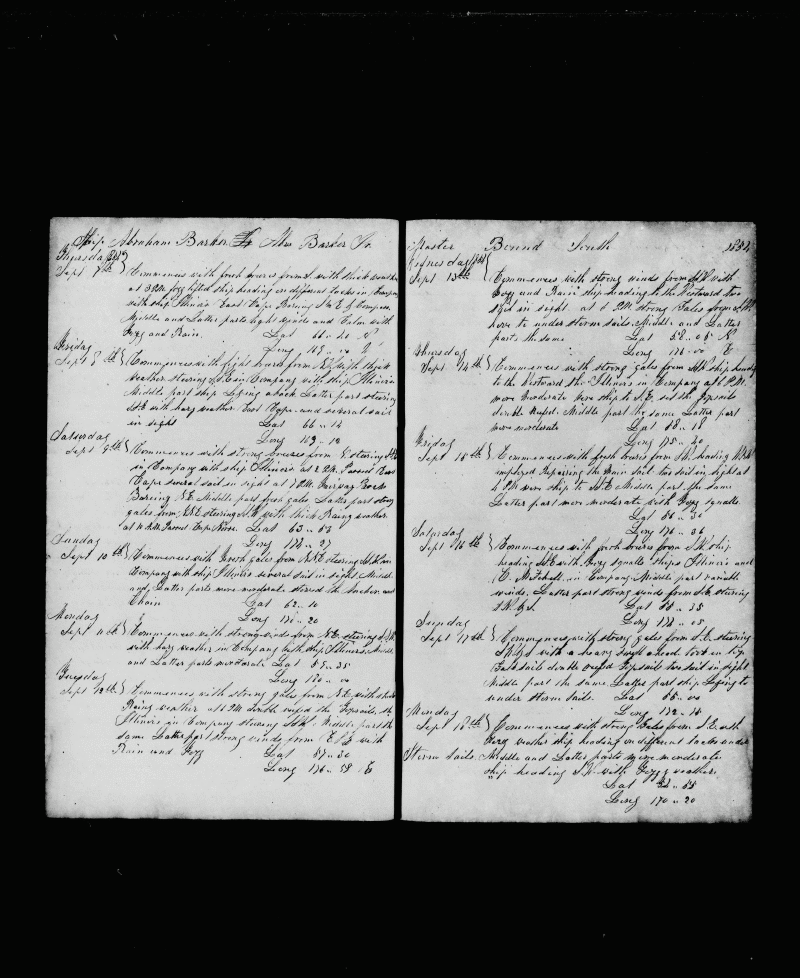 Ship Abraham Barker Abm Barker Jr.
Thursday
Sept 7th } Commences with fresh breeses from with thick weather
at 3 PM fog lifted ship heading on different tacks in Company
with ship Illinois East Cape Baring of Compass
Middle and Latter parts light winds and Calm with
Fogg and Rain. Lat 66 .. N
Long 169 .. 00
Friday
Sept 8th } Commences with light wind from with thick
weather steering in Company with ship Illinois
Middle part ship Lying aback Latter part steering
with hazy weather East Cape and several sail
in sight Lat 66 .. 14
Long 169 .. 10
Satterday
Sept 9th } Commences with strong breeses from steering
in Company with ship Illinois at 2 PM Passed East
Cape several sail in sight at 7 PM Fairway Rock
Bareing N.E. Middle part fresh gales Latter part strong
gales from steering with thick Rainy weather
at 11 AM Passed Cape Lat 63 .. 53
Long 172 .. 27
Sunday
Sept 10th } Commences with fresh gales from steering in
Company with ship Illinois several sail in sight Middle
and Latter parts more moderate stowed the Anchor and
Chain Lat 62 .. 10
Long .. 20
Monday
Sept 11th } Commences with strong winds from N.E. steering
with hazy weather in Company with ship Illinois Middle
and Latter parts moderate Lat 59 .. 35
Long 180 .. 00
Tuesday
Sept 12th } Commences with strong gales from N.E. with thick
Rainy weather at 12 M double reefed the Topsails the
Illinois in Company steering Middle part the
same Latter part strong winds from with
Rain and Fogg Lat 57 .. 30
Long 178 .. 58 E
Master Bound South 1854
Wednesday
Sept 13th } Commences with strong winds from with
Fogg and Rain ship heading to the Westward two
sail in sight at 6 PM strong Gales from
hove to under storm sails Middle and Latter
parts the same Lat 58 .. 05 N
Long 176 .. 00 E
Thursday
Sept 14th } Commences with strong gales from ship heading
to the Westward the Illinois in Company at 6 PM
more moderate wore ship to S.E. set the Topsails
double Reefed. Middle part the same Latter part
more moderate Lat 58 .. 18
Long 175 .. 20
Friday
Sept 15th } Commences with fresh breeses from heading
imployed Repairing the main sail two sail in sight at
4 PM wore ship to S.E. Middle part the same
Latter part more moderate with Fogg squalls
Lat 56 .. 30
Long 176 .. 36
Saturday
Sept 16th } Commences with fresh breeses from ship
heading S.E. with Fogg squalls ships Illinois and
C. Mitchell in Company Middle part variable
winds. Latter part strong winds from S.E. steering
Lat 55 .. 35
Long 174 .. 05
Sunday
Sept 17th } Commences with strong gales from S.E. steering
with a heavy swell ahead took in
sails double reefed Topsails two sail in sight
Middle part the same. Latter part ship Lying to
under storm sails. Lat 55 .. 00
Long 172 .. 14
Monday
Sept 18th } Commences with strong Gales from S.E. with
Fogg weather ship heading on different tacks under
Storm sails. Middle and Latter parts more moderate
ship heading S.W. with Foggy weather.
Lat .. 55
Long 170 .. 20